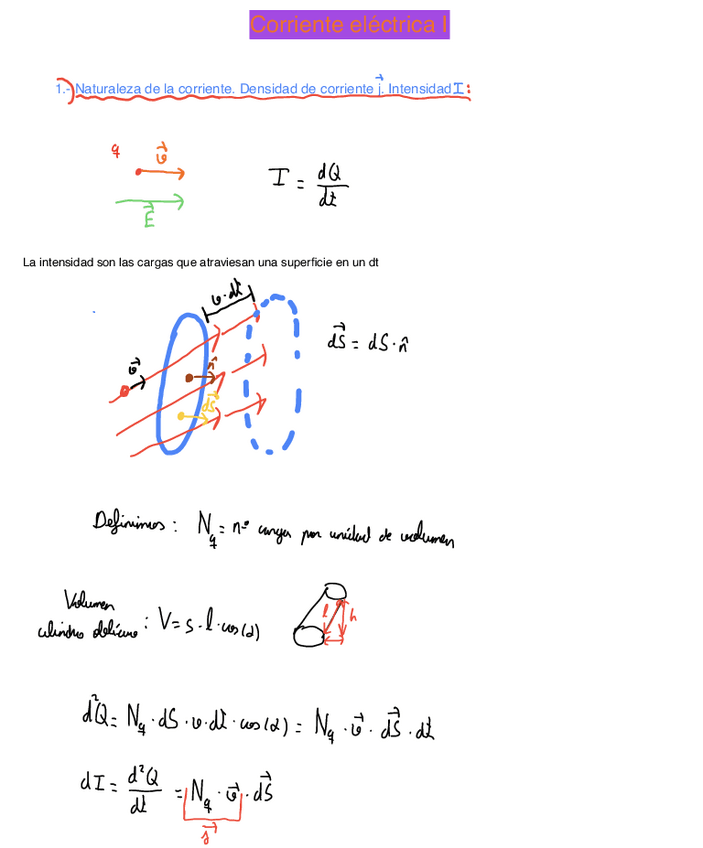 Corriente eléctrica I
1.-) Naturaleza de la corriente. Densidad de corriente j⃗. Intensidad I:
q v⃗
E⃗
I = dQ/dt
La intensidad son las cargas que atraviesan una superficie en un dt
v·dt
v⃗
n̂
dS⃗
dS⃗ = dS·n̂
Definimos: N_q = nº cargas por unidad de volumen
Volumen
cilindro oblicuo : V = s·l·cos(α)
l h
d²Q = N_q·dS·v·dt·cos(α) = N_q·v⃗·dS⃗·dt
dI = d²Q/dt = N_q·v⃗·dS⃗
j⃗